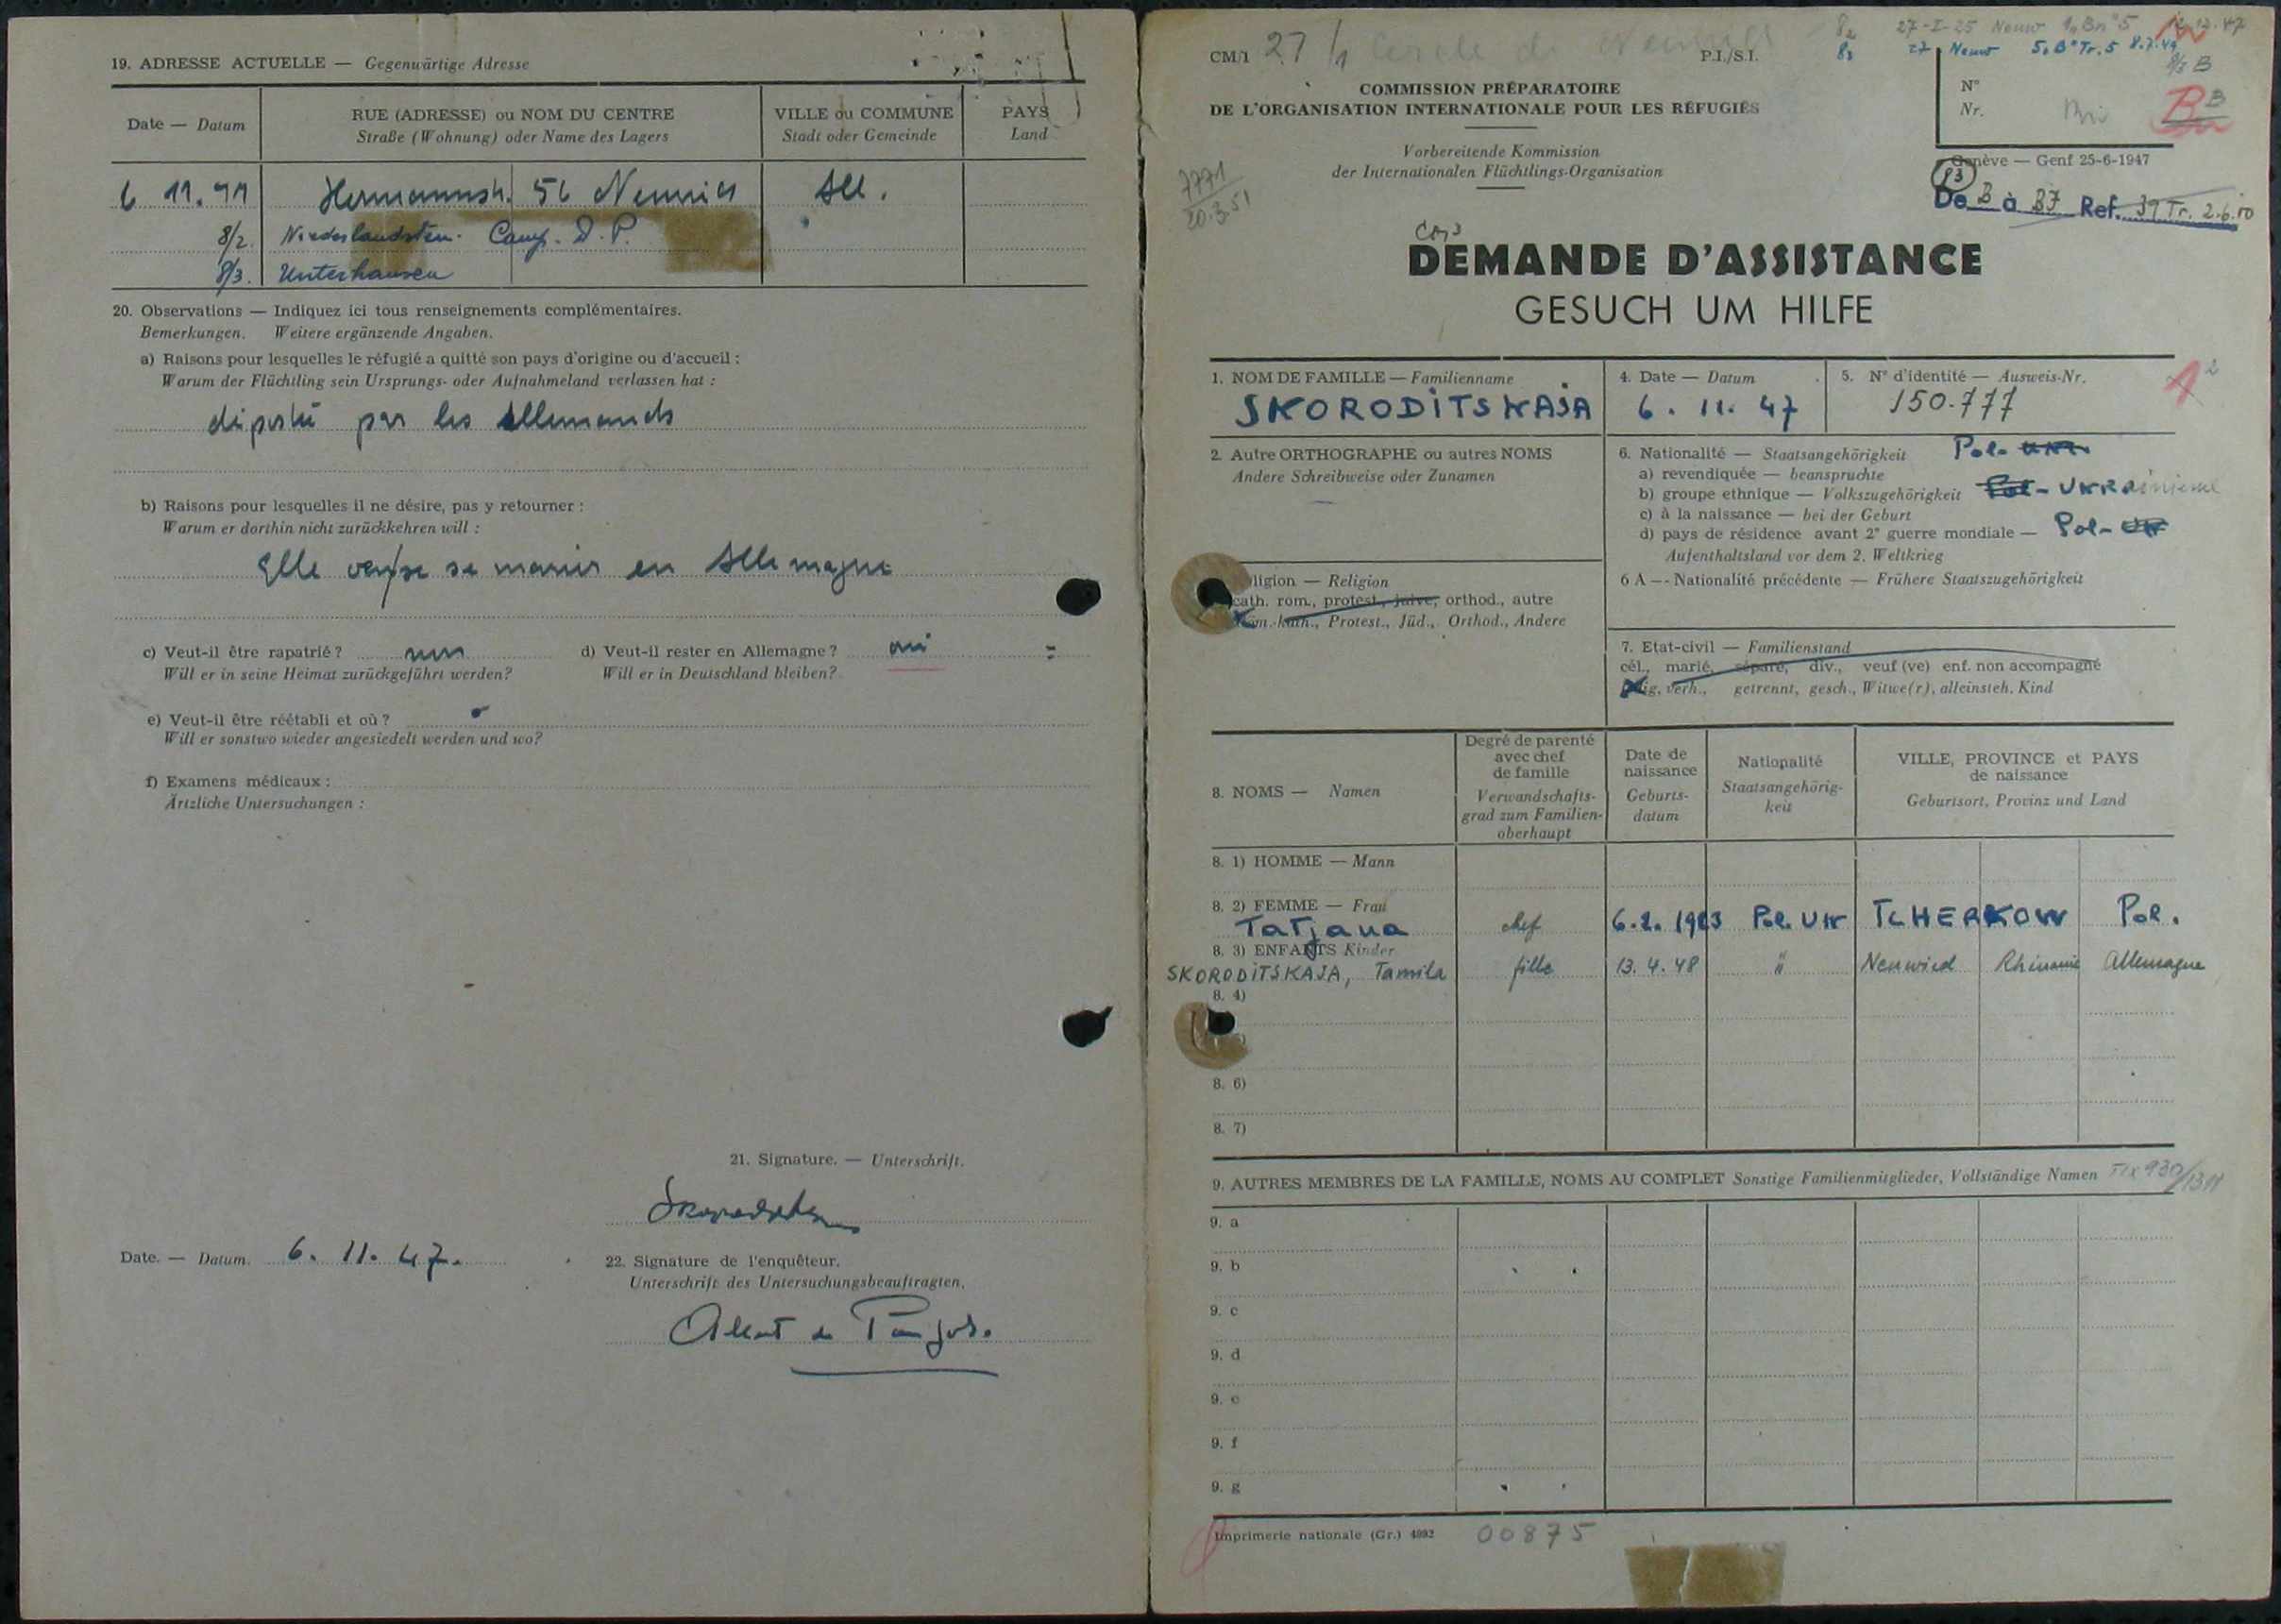 19. ADRESSE ACTUELLE — Gegenwärtige Adresse
Date — Datum
RUE (ADRESSE) ou NOM DU CENTRE
Straße (Wohnung) oder Name des Lagers
VILLE ou COMMUNE
Stadt oder Gemeinde
PAYS
Land
6 11. 56 All.
8/2. Camp. D. P.
8/3. Unterhausen
20. Observations — Indiquez ici tous renseignements complémentaires.
Bemerkungen. Weitere ergänzende Angaben.
a) Raisons pour lesquelles le réfugié a quitté son pays d'origine ou d'accueil :
Warum der Flüchtling sein Ursprungs- oder Aufnahmeland verlassen hat :
déporté par les Allemands
b) Raisons pour lesquelles il ne désire, pas y retourner :
Warum er dorthin nicht zurückkehren will :
Elle se marier en Allemagne
c) Veut-il être rapatrié ? non
Will er in seine Heimat zurückgeführt werden?
d) Veut-il rester en Allemagne ? oui
Will er in Deutschland bleiben?
e) Veut-il être réétabli et où ?
Will er sonstwo wieder angesiedelt werden und wo?
f) Examens médicaux :
Ärtzliche Untersuchungen :
21. Signature. — Unterschrift.
Date. — Datum. 6. 11. 47.
22. Signature de l'enquêteur.
Unterschrift des Untersuchungsbeauftragten.
CM/1 27 P.I./S.I.
27-I-25
COMMISSION PRÉPARATOIRE
DE L'ORGANISATION INTERNATIONALE POUR LES RÉFUGIÉS
N°
Nr.
Vorbereitende Kommission
der Internationalen Flüchtlings-Organisation
Genève — Genf 25-6-1947
7771
20.3.51
De B à B7 Ref. 39 Tr. 2.6.50
DEMANDE D'ASSISTANCE
GESUCH UM HILFE
1. NOM DE FAMILLE — Familienname
SKORODITSKAJA
4. Date — Datum
6. 11. 47
5. N° d'identité — Ausweis-Nr.
150.777
2. Autre ORTHOGRAPHE ou autres NOMS
Andere Schreibweise oder Zunamen
6. Nationalité — Staatsangehörigkeit Pol-
a) revendiquée — beanspruchte
b) groupe ethnique — Volkszugehörigkeit Pol- UKRainienne
c) à la naissance — bei der Geburt
d) pays de résidence avant 2° guerre mondiale — Pol-
Aufenthaltsland vor dem 2. Weltkrieg
6 A — Nationalité précédente — Frühere Staatszugehörigkeit
ligion — Religion
cath. rom., protest., juive, orthod., autre
Röm.-kath., Protest., Jüd., Orthod., Andere
7. Etat-civil — Familienstand
cél., marié, séparé, div., veuf (ve) enf. non accompagné
ledig, verh., getrennt, gesch., Witwe(r), alleinsteh. Kind
8. NOMS — Namen
Degré de parenté
avec chef
de famille
Verwandschafts-
grad zum Familien-
oberhaupt
Date de
naissance
Geburts-
datum
Nationalité
Staatsangehörig-
keit
VILLE, PROVINCE et PAYS
de naissance
Geburtsort, Provinz und Land
8. 1) HOMME — Mann
8. 2) FEMME — Frau
Tatjana chef 6.2. 1923 Pol. UK TCHERKOW Pol.
8. 3) ENFANTS Kinder
SKORODITSKAJA, Tamila fille 13. 4. 48 " Neuwied Rhénanie Allemagne
8. 4)
8. 6)
8. 7)
9. AUTRES MEMBRES DE LA FAMILLE, NOMS AU COMPLET Sonstige Familienmitglieder, Vollständige Namen
9. a
9. b
9. c
9. d
9. e
9. f
9. g
Imprimerie nationale (Gr.) 4092 00875